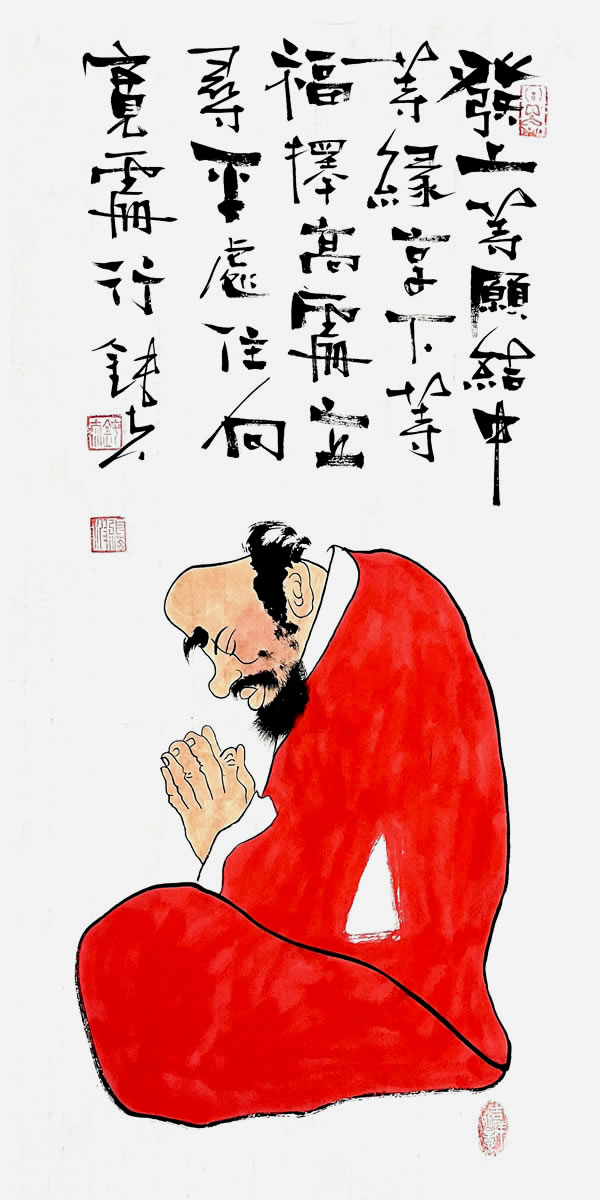 發上等願結中
等緣享下等
福擇高處立
尋平處住向
寬處行